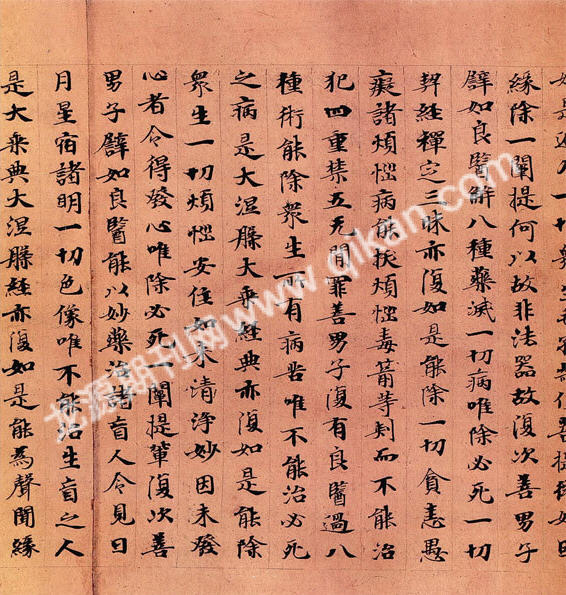 緣除一闡提何以故非法器故復次善男子
譬如良醫解八種藥滅一切病唯除必死一切
契經禪定三昧亦復如是能除一切貪恚愚
癡諸煩惱病能拔煩惱毒箭等刾而不能治
犯四重禁五无間罪善男子復有良醫過八
種術能除衆生所有病苦唯不能治必死
之病是大涅槃大乘經典亦復如是能除
衆生一切煩惱安住如来清淨妙因未發
心者令得發心唯除必死一闡提輩復次善
男子譬如良醫能以妙藥治諸盲人令見日
月星宿諸明一切色像唯不能治生盲之人
是大乘典大涅槃經亦復如是能為聲聞緣
龙源期刊网www.qikan.com